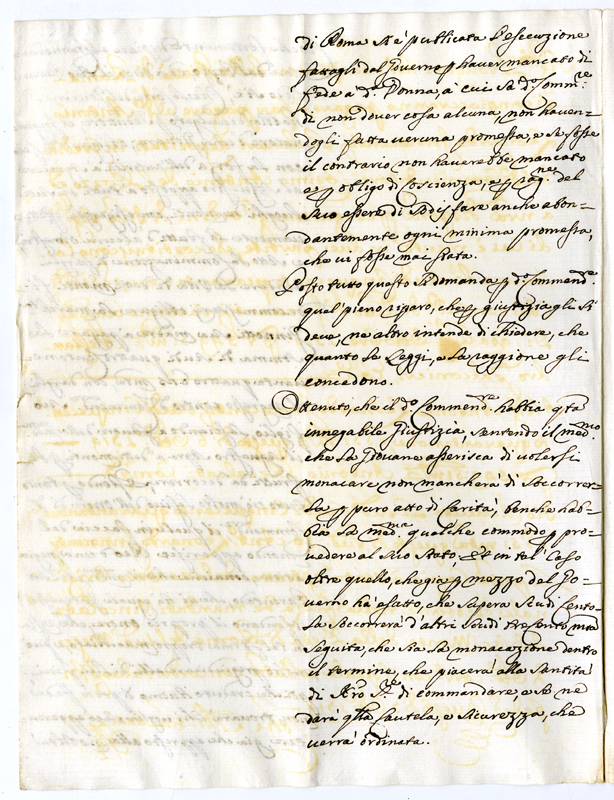 di Roma si è publicata l'esecuzione
fattagli dal Governo p haver mancato di
fede a dª Donna, à cui il d.º Comm.re
dì non dover cosa alcuna, non haven-
dogli fatta veruna promessa, e se fosse
il contrario non haverebbe mancato
e p obligo di Coscienza, e p rag.ne del
suo essere di sodisfare anche abon-
dantemente ogni minima promessa,
che vi fosse mai stata.
Posto tutto questo si domanda p d.º Commend.re
quel pieno riparo, che p giustizia gli si
deve, ne altro intende di chiedere, che
quanto le Leggi, e la raggione gli
concedono.
Ottenuto, che il d.º Commend.re habbia q.ta
innegabile Giustizia, sentendo il med.mo
che la Giovane asserisca di volersi
monacare non mancherà di soccorrer-
la p puro atto di carità, benche hab-
bia la med.ma qualche commodo p pro-
vedere al suo stato, Et in tal' Caso
oltre quello, che già p mezzo del Go-
verno hà esatto, che supera Scudi Cento
la soccorrerà d'altri Scudi Trecento
seguita, che sia la monacazione dentro
il termine, che piacerà alla Santità
di Nro Sig.re di commandare, e se ne
darà q.lla Cautela, e sicurezza, che
verrà ordinata.